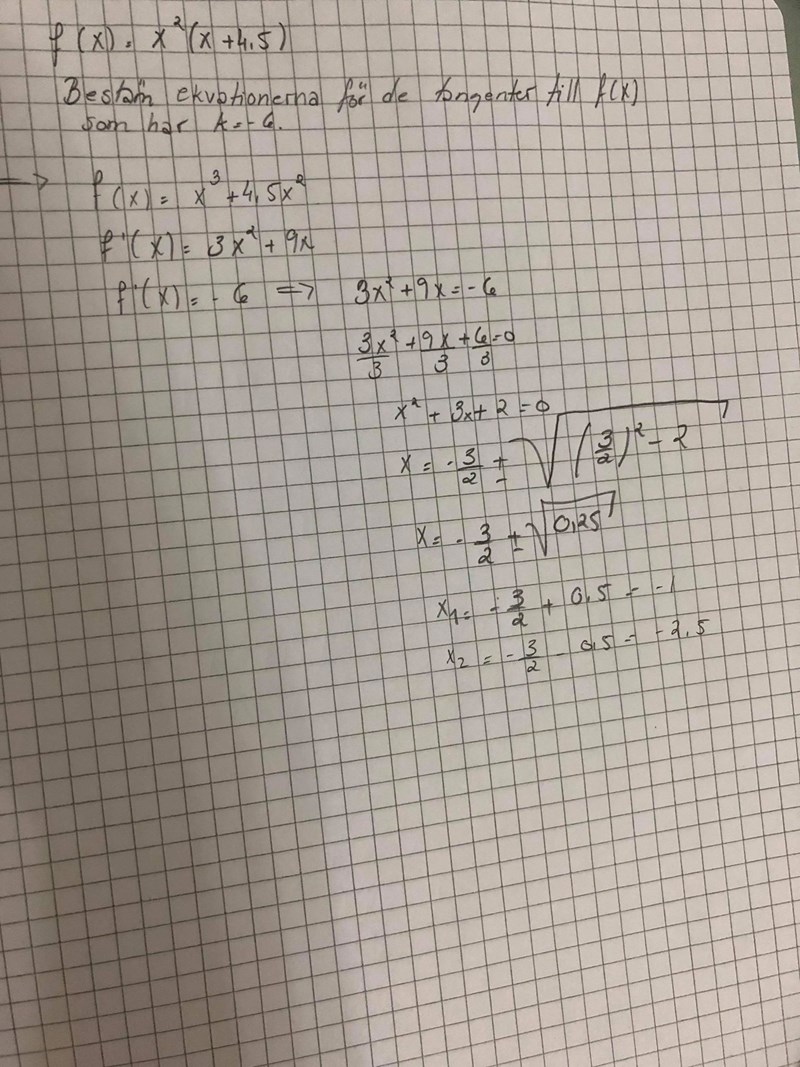 f(x) = x²(x+4,5)
Bestäm ekvationerna för de tangenter till f(x)
som har k=-6.
=> f(x) = x³+4,5x²
f'(x) = 3x²+9x
f'(x) = -6 => 3x²+9x=-6
3x²/3 + 9x/3 + 6/3 = 0
x² + 3x + 2 = 0
x = -3/2 ± √((3/2)² - 2)
x = -3/2 ± √0,25
x₁ = -3/2 + 0,5 = -1
x₂ = -3/2 - 0,5 = -2,5